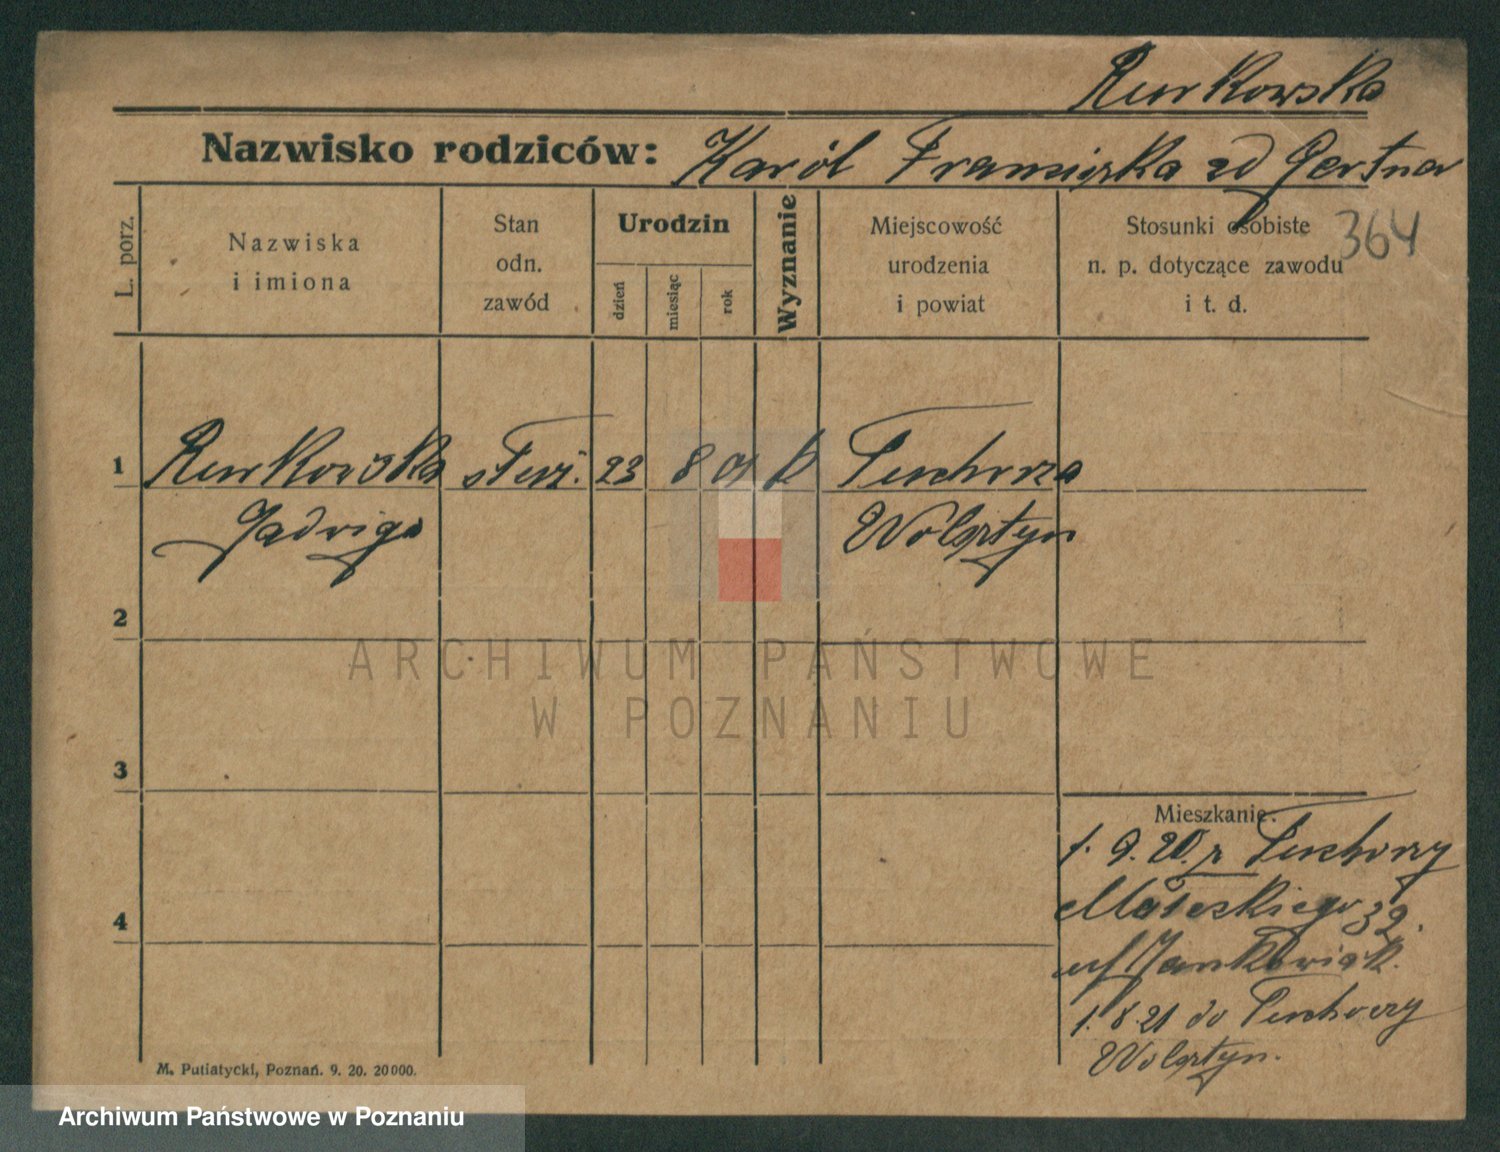 Rurkowska
Nazwisko rodziców: Karól Franciszka zd Gertner
364
L. porz.
Nazwiska
i imiona
Stan
odn.
zawód
Urodzin
dzień
miesiąc
rok
Wyznanie
Miejscowość
urodzenia
i powiat
Stosunki osobiste
n. p. dotyczące zawodu
i t. d.
1 Rurkowska służ. 23 8 01 k Tuchorza
Jadwiga Wolsztyn
2
ARCHIWUM PAŃSTWOWE
W POZNANIU
3
Mieszkanie:
1. 9. 20. z Tuchorzy
4
Małeckiego 32.
Jankowiak.
1. 8. 21 do Tuchorzy
Wolsztyn.
M. Putiatycki, Poznań. 9. 20. 20000.
Archiwum Państwowe w Poznaniu